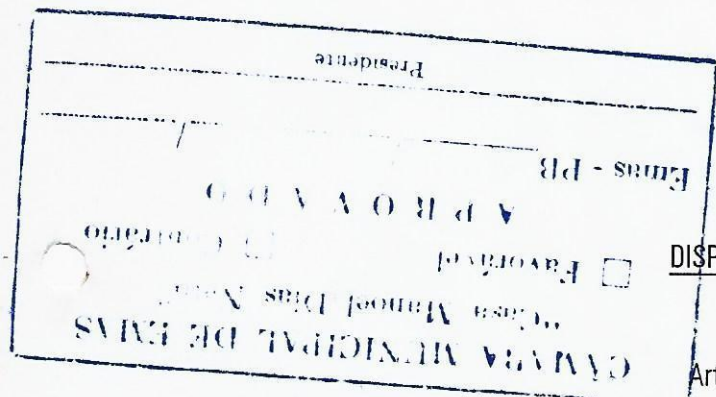 CÂMARA MUNICIPAL DE EMAS
"Casa Manoel Dias
☐ Favorável ☐ Contrário
APROVADO
Emas - PB
/
Presidente
DISP
Art